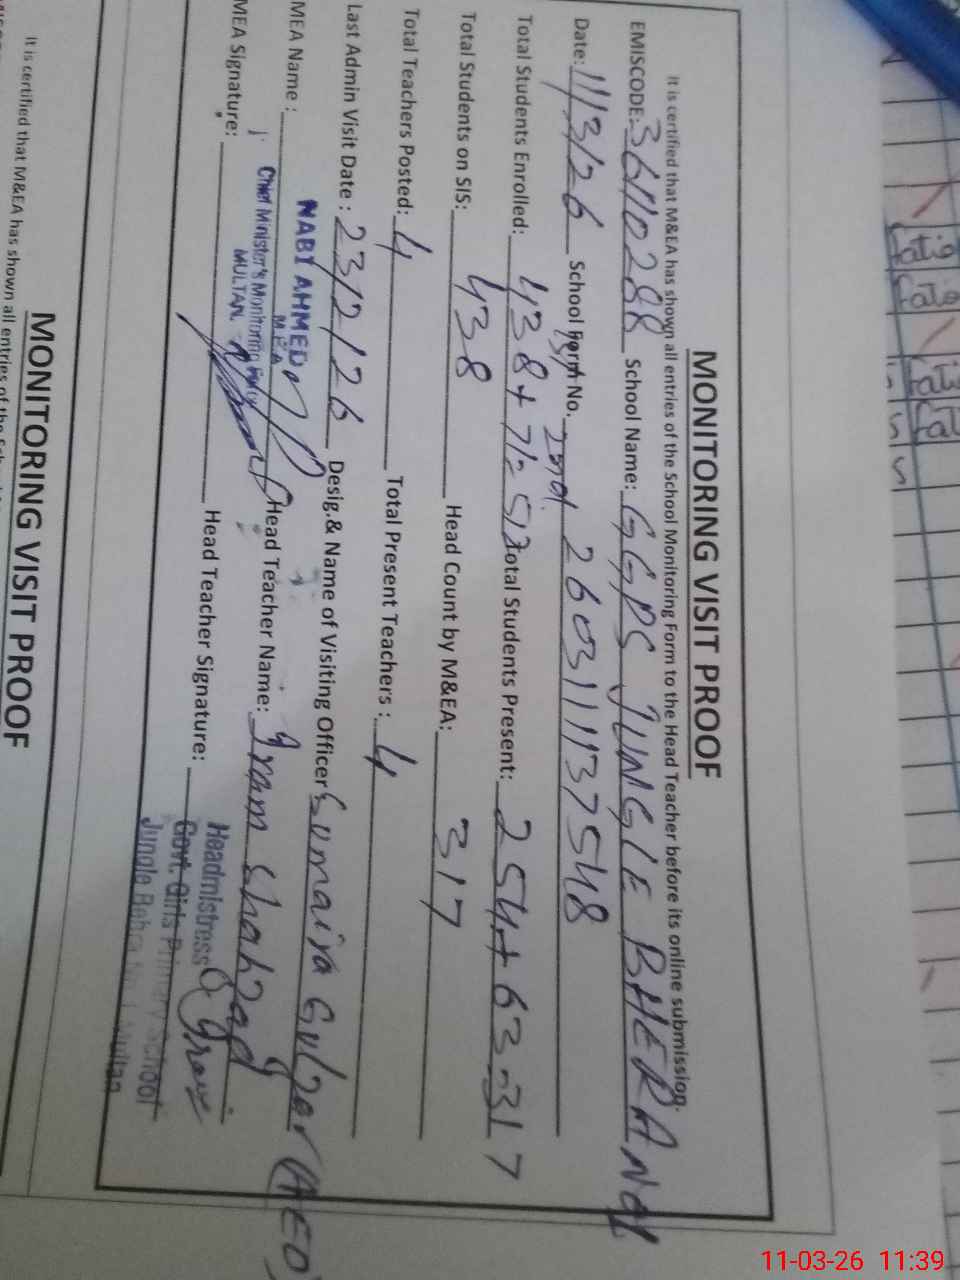 MONITORING VISIT PROOF
It is certified that M&EA has shown all entries of the School Monitoring Form to the Head Teacher before its online submission.
EMISCODE: 36110288 School Name: GGPS JUNGLE BHERA No1
Date: 11/3/26 School Form No. 2603111137548
Total Students Enrolled: 438+71= Total Students Present: 254+63=317
Total Students on SIS: 438 Head Count by M&EA: 317
Total Teachers Posted: 4 Total Present Teachers: 4
Last Admin Visit Date: 23/2/26 Desig.& Name of Visiting Officer: Sumaira Gulzar (AEO)
MEA Name: NABI AHMED Head Teacher Name: Iram Shahzad
M.E.A
Chief Minister's Monitoring Force
MULTAN.
MEA Signature: Head Teacher Signature:
Headmistress
Govt. Girls Primary School
Jungle Behra No.1 Multan
MONITORING VISIT PROOF
It is certified that M&EA has shown all entries of the
11-03-26 11:39